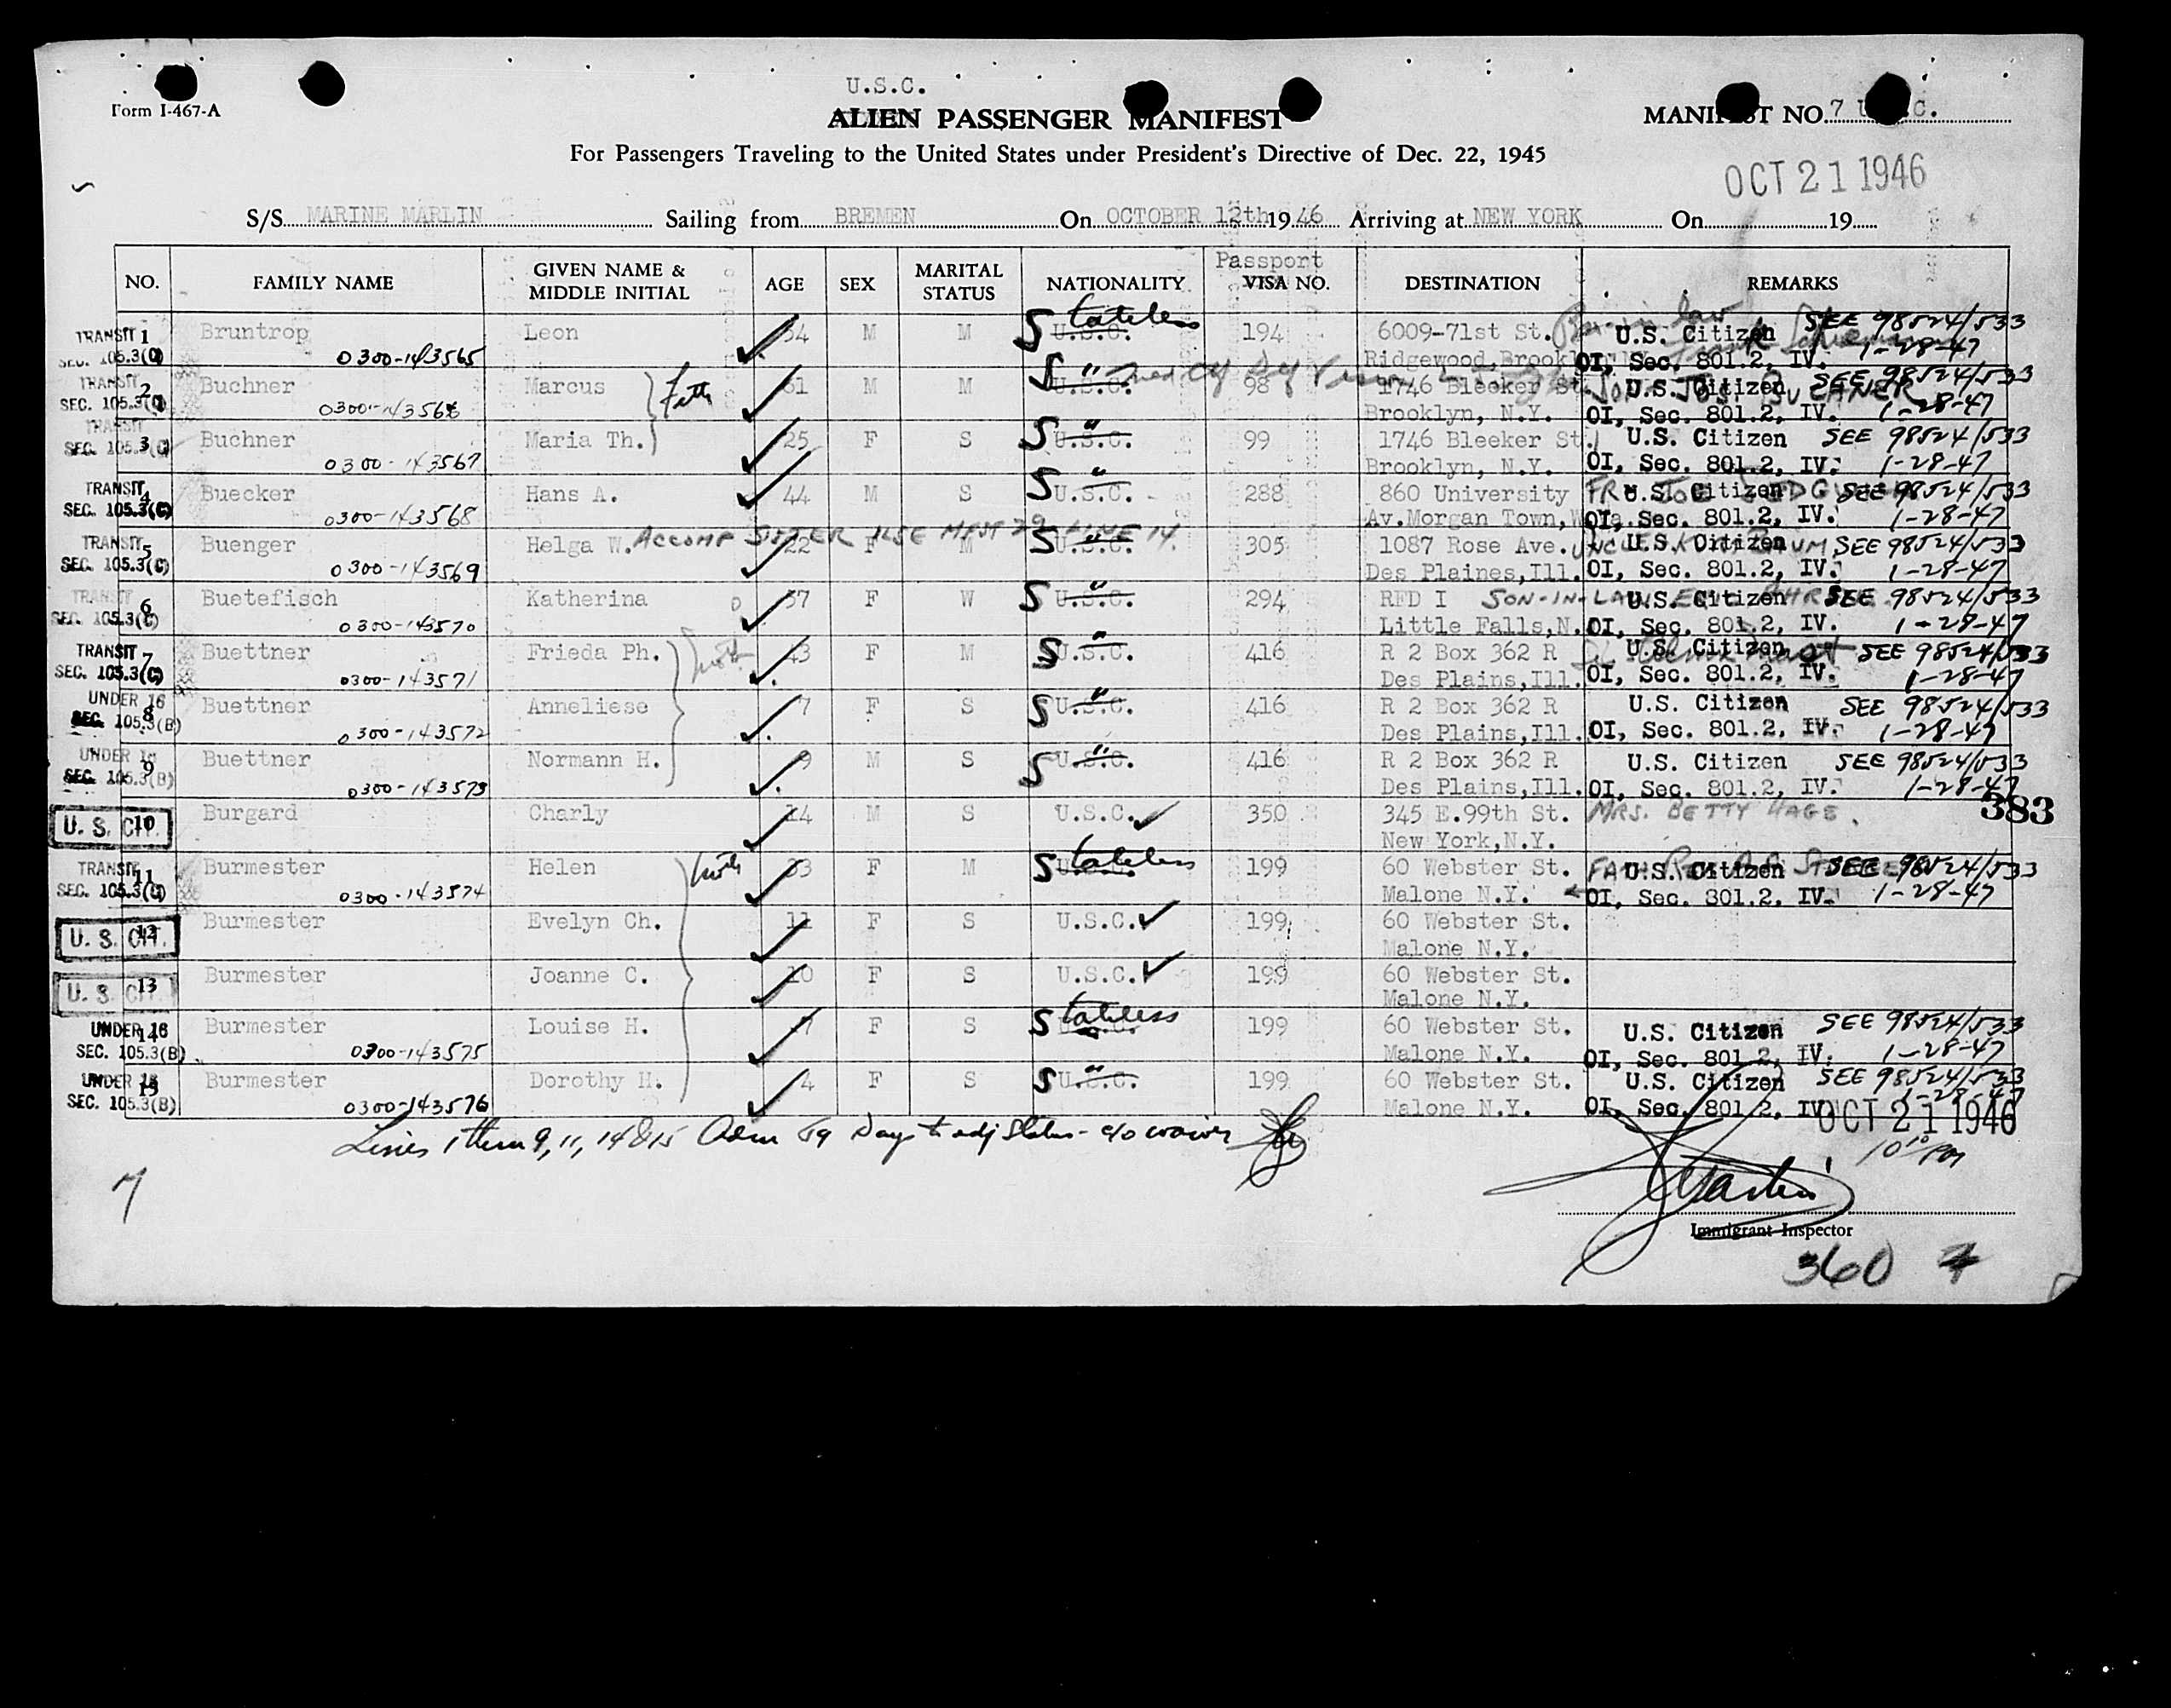 U.S.C.
Form I-467-A
ALIEN PASSENGER MANIFEST
MANIFEST NO. 7 U.S.C.
For Passengers Traveling to the United States under President's Directive of Dec. 22, 1945
OCT 21 1946
S/S MARINE MARLIN Sailing from BREMEN On OCTOBER 12th 19 46 Arriving at NEW YORK On 19
NO. FAMILY NAME GIVEN NAME & MIDDLE INITIAL AGE SEX MARITAL STATUS NATIONALITY Passport VISA NO. DESTINATION REMARKS
TRANSIT 1 Bruntrop Leon 54 M M U.S.C. Stateless 194 6009-71st St. U.S. Citizen SEE 98524/533
SEC. 105.3(C) 0300-143565 Ridgewood, Brookl OI, Sec. 801.2, IV. 1-28-47
TRANSIT 2 Buchner Marcus Fath 61 M M S " U.S.C. 98 1746 Bleeker St. U.S. Citizen SEE 98524/533
SEC. 105.3(C) 0300-143566 Brooklyn, N.Y. OI, Sec. 801.2, IV. 1-28-47
TRANSIT 3 Buchner Maria Th. 25 F S S " U.S.C. 99 1746 Bleeker St. U.S. Citizen SEE 98524/533
SEC. 105.3(C) 0300-143567 Brooklyn, N.Y. OI, Sec. 801.2, IV. 1-28-47
TRANSIT 4 Buecker Hans A. 44 M S S " U.S.C. 288 860 University U.S. Citizen SEE 98524/533
SEC. 105.3(C) 0300-143568 Av.Morgan Town, OI, Sec. 801.2, IV. 1-28-47
ACCOMP SISTER ILSE MAN 29 LINE 14
TRANSIT 5 Buenger Helga W. 22 F M S " U.S.C. 305 1087 Rose Ave. UNCLE U.S. Citizen SEE 98524/533
SEC. 105.3(C) 0300-143569 Des Plaines,Ill. OI, Sec. 801.2, IV. 1-28-47
TRANSIT 6 Buetefisch Katherina 57 F W S " U.S.C. 294 RFD I SON-IN-LAW U.S. Citizen SEE 98524/533
SEC. 105.3(C) 0300-143570 Little Falls,N. OI, Sec. 801.2, IV. 1-28-47
TRANSIT 7 Buettner Frieda Ph. 43 F M S " U.S.C. 416 R 2 Box 362 R U.S. Citizen SEE 98524/533
SEC. 105.3(C) 0300-143571 Des Plains,Ill. OI, Sec. 801.2, IV. 1-28-47
UNDER 16 8 Buettner Anneliese 7 F S S " U.S.C. 416 R 2 Box 362 R U.S. Citizen SEE 98524/533
SEC. 105.3(B) 0300-143572 Des Plains,Ill. OI, Sec. 801.2, IV. 1-28-47
UNDER 16 9 Buettner Normann H. 9 M S S " U.S.C. 416 R 2 Box 362 R U.S. Citizen SEE 98524/533
SEC. 105.3(B) 0300-143573 Des Plains,Ill. OI, Sec. 801.2, IV. 1-28-47
383
U. S. CIT. 10 Burgard Charly 14 M S U.S.C. 350 345 E.99th St. MRS. BETTY HAGE.
New York,N.Y.
TRANSIT 11 Burmester Helen Moth 33 F M Stateless 199 60 Webster St. U.S. Citizen SEE 98524/533
SEC. 105.3(C) 0300-143574 Malone N.Y. OI, Sec. 801.2, IV. 1-28-47
U. S. CIT. 12 Burmester Evelyn Ch. 11 F S U.S.C. 199 60 Webster St.
Malone N.Y.
U. S. CIT. 13 Burmester Joanne C. 10 F S U.S.C. 199 60 Webster St.
Malone N.Y.
UNDER 16 14 Burmester Louise H. 7 F S Stateless 199 60 Webster St. U.S. Citizen SEE 98524/533
SEC. 105.3(B) 0300-143575 Malone N.Y. OI, Sec. 801.2, IV. 1-28-47
UNDER 16 15 Burmester Dorothy H. 4 F S S " U.S.C. 199 60 Webster St. U.S. Citizen SEE 98524/533
SEC. 105.3(B) 0300-143576 Malone N.Y. OI, Sec. 801.2, IV. 1-28-47
OCT 21 1946
Lines 1 thru 9, 11, 14 & 15 Adm 59 Days to adj Status - c/o waiver
10 10 PM
7
Immigrant Inspector
360 7